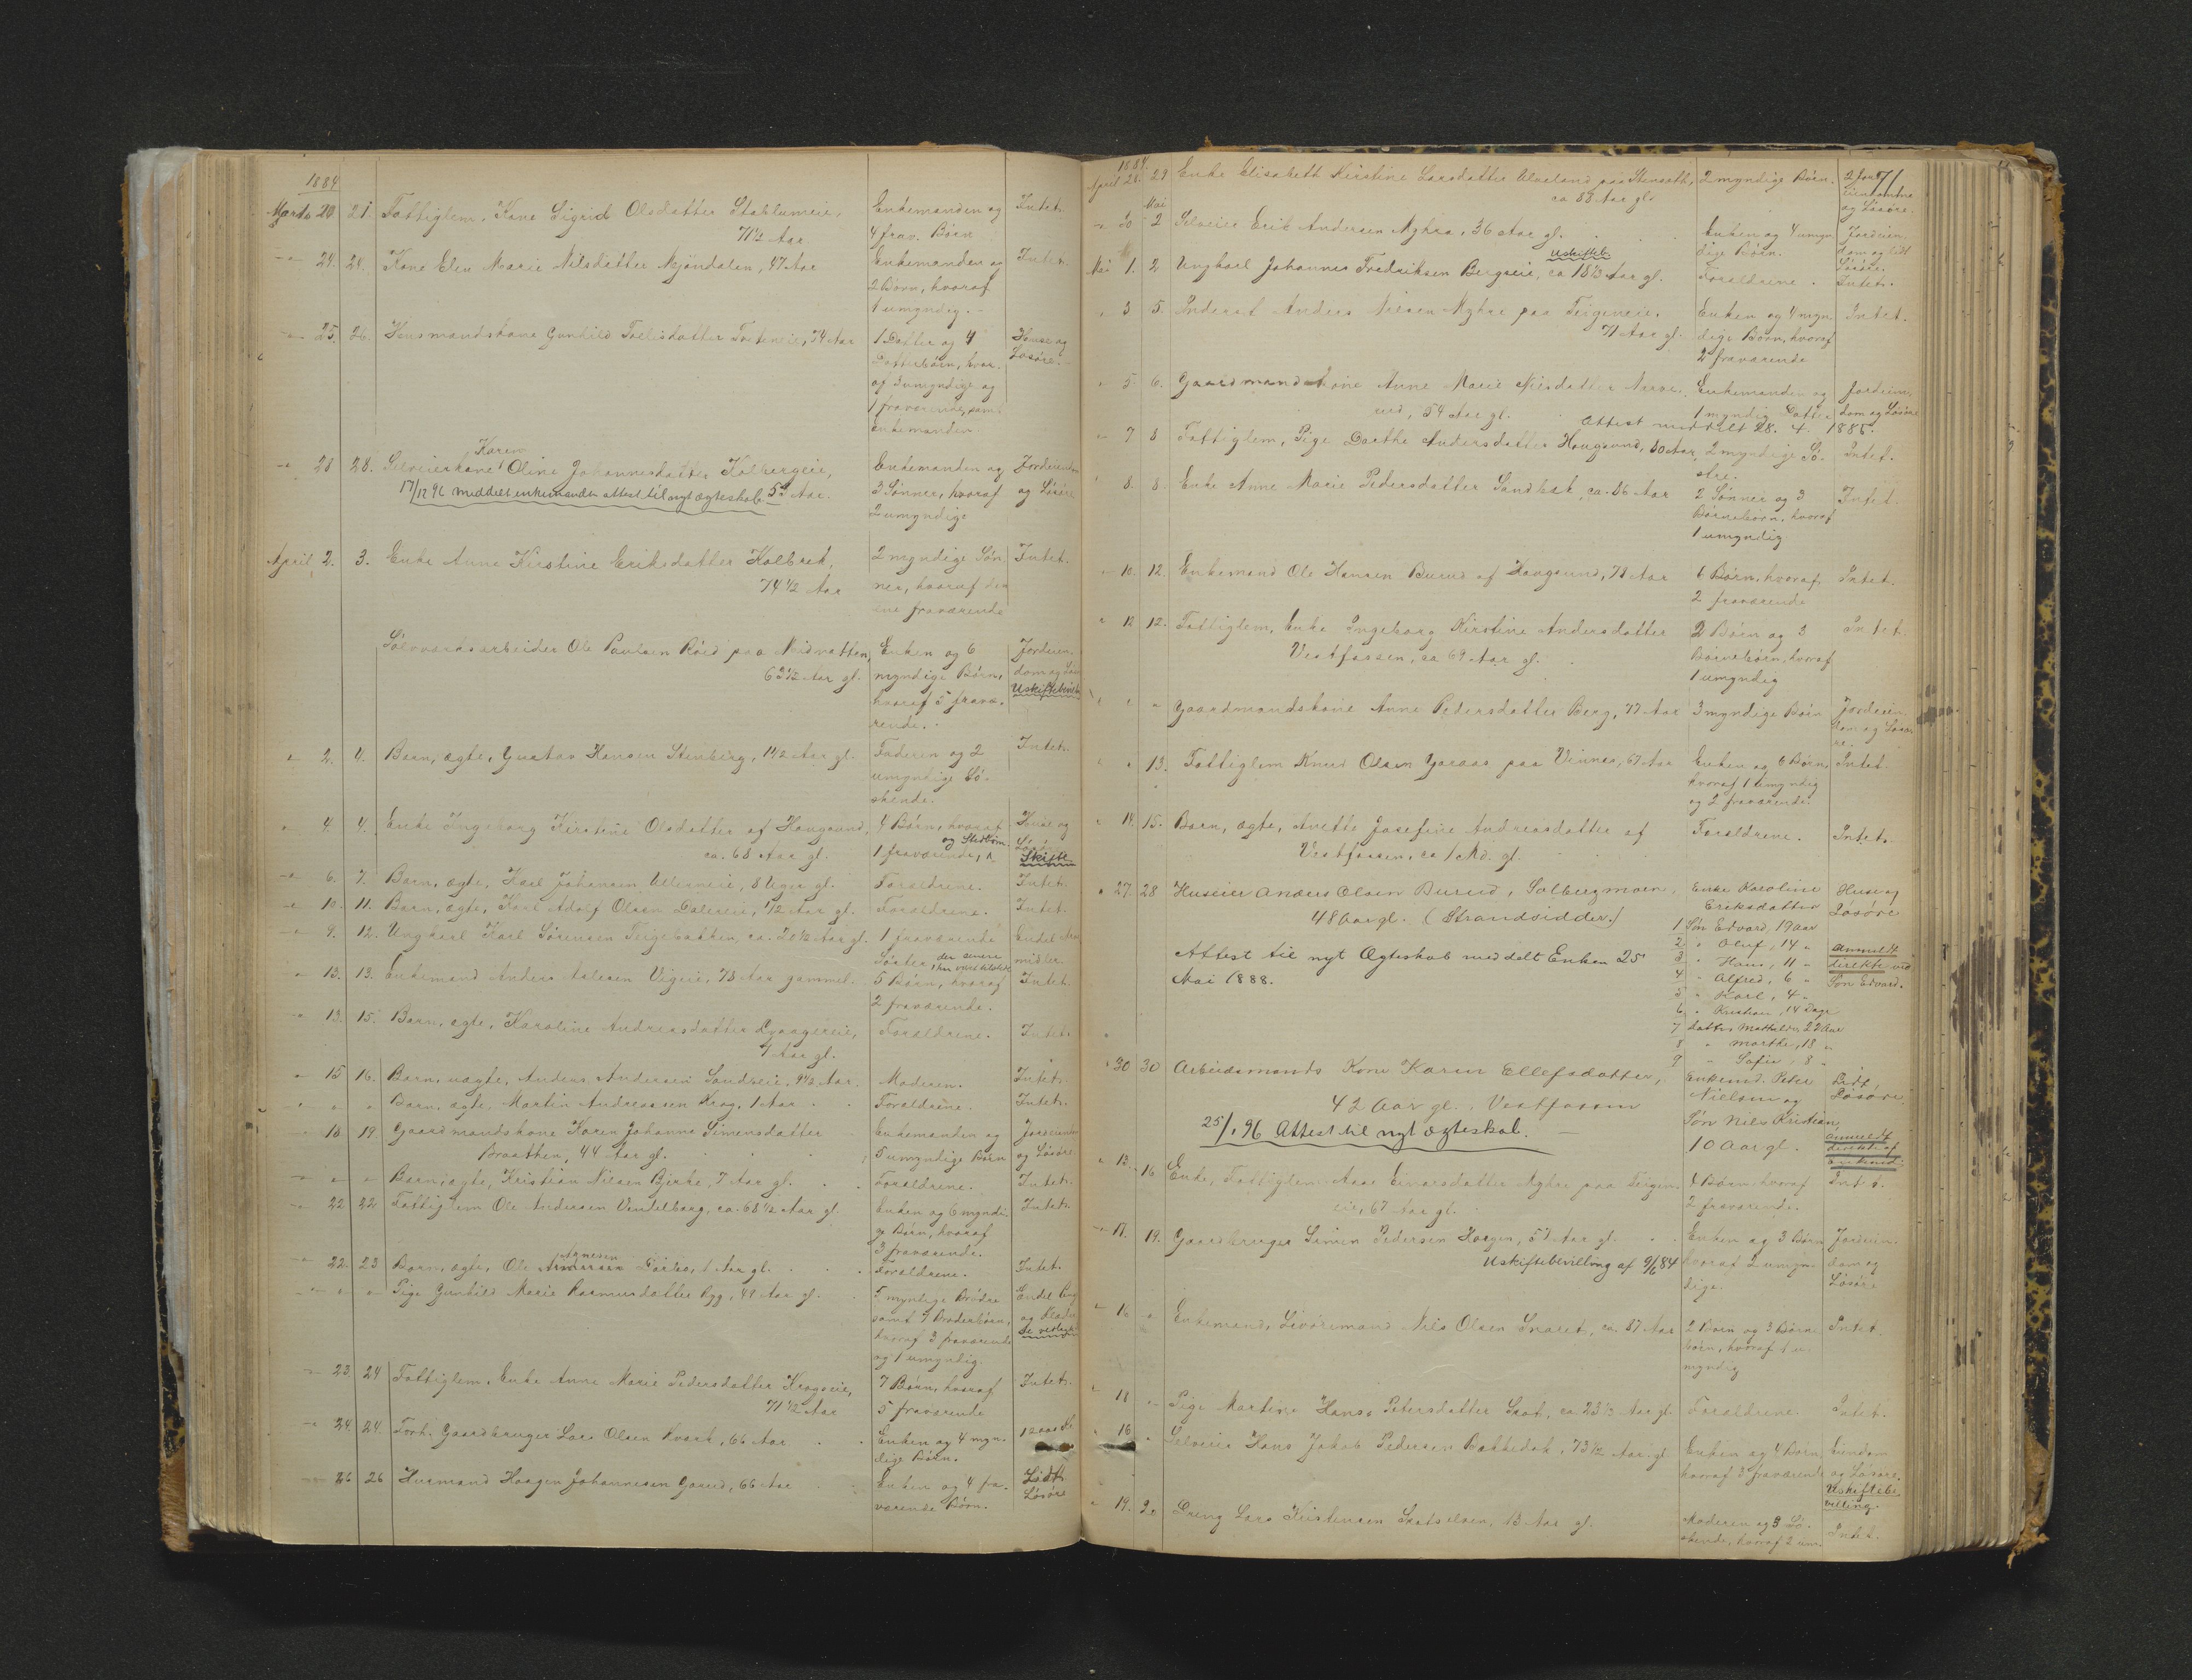 1884
Marts 20 21. Fattiglem, Kone Sigrid Olsdatter Stablumeie, Enkemanden og Intet.
71½ Aar 4 frav. Børn
24. 24. Kone Elen Marie Nilsdatter Mjøndalen, 47 Aar Enkemanden og Intet.
2 Børn, hvoraf
1 umyndig.
25. 26. Husmandskone Gunhild Tollefsdatter 74 Aar 1 Datter og 4 Huse og
Datterbørn, hvor- Løsøre.
af 3 umyndige og
1 fraværende, samt
Enkemanden.
Karen
28 28. Selveierkone Oline Johannesdatter Kolbergeie, Enkemanden og Jordeiendom
17/12 96 meddelt enkemanden attest til nyt ægteskab. 59 Aar. 3 Sønner, hvoraf og Løsøre
2 umyndige
April 2. 3. Enke Anne Kirstine Eriksdatter Kolbrek, 2 myndige Søn- Intet.
74½ Aar ner, hvoraf den
ene fraværende
Sølvværksarbeider Ole Paulsen Röid paa Midnatten, Enken og 6 Jordeien-
62½ Aar gl. myndige Børn, dom og Løsøre
hvoraf 5 fravæ- Uskiftebevill.
rende.
2. 4. Barn, ægte, Gustav Hansen Stenberg, 1½ Aar gl. Faderen og 2 Intet.
umyndige Sø-
skende.
4. 4. Enke Ingeborg Kirstine Olsdatter af Hougsund, 4 Børn, hvoraf Huse og
og Stedbørn
ca. 68 Aar gl. 1 fraværende, Løsøre
Skifte
6. 7. Barn, ægte, Karl Johansen 8 Uger gl. Forældrene. Intet.
10. 11. Barn, ægte, Karl Adolf Olsen Daleeie, ½ Aar gl. Forældrene. Intet.
9. 12. Ungkarl Karl Sørensen Teigebakken, ca. 20½ Aar gl. 1 fraværende Endel
Søster midler.
13. 13. Enkemand Anders Vigeie, 78 Aar gammel. 5 Børn, hvoraf Intet.
2 fraværende.
13. 15. Barn, ægte, Karoline Andreasdatter Forældrene. Intet.
7 Aar gl.
15 16. Barn, uægte, Anders Andersen Sandseie, 9½ Aar. Moderen. Intet.
Barn, ægte, Martin Andreassen Krog, 1 Aar Forældrene. Intet.
18 19 Gaardmandskone Karen Johanne Simensdatter Enkemanden og Jordeiendom
Braathen, 44 Aar gl. 5 umyndige Børn og Løsøre
Barn, ægte, Kristian Nilsen Bjerke, 7 Aar gl. Forældrene. Intet.
22 22 Fattiglem Ole Andersen Vendelborg, ca. 68½ Aar gl. Enken og 6 myndi- Intet.
ge Børn, hvoraf
3 fraværende.
Agnesen
22. 23 Barn, ægte, Ole Andersen 1 Aar gl. Forældrene. Intet.
Pige Gunhild Marie Rasmusdatter Ryg, 49 Aar gl. 5 myndige Brødre Endel
samt 7 Broderbørn, og Klæder
hvoraf 3 fraværende
og 1 umyndig.
23 24 Fattiglem, Enke Anne Marie Pedersdatter Krogseie, 7 Børn, hvoraf Intet.
71½ Aar 5 fraværende
24. 24. Forh. Gaardbruger Lars Olsen Kvark, 66 Aar Enken og 4 myn-
dige Børn.
26 26 Husmand Haagen Johannesen Gosrud, 66 Aar Enken og 4 fra- Lidt
værende Børn. Løsøre
1884.
April 28. 29 Enke Elisabeth Kirstine Larsdatter Ulveland paa Stenseth, 2 myndige Børn. 2 Jord-
ca 88 Aar gl. eiendomme
og Løsøre.
71
Mai
30 2 Selveier Erik Andersen Myhre, 36 Aar gl. Enken og 4 umyn- Jordeien-
Uskifteb. dige Børn. dom og lidt
Løsøre.
Mai 1. 2 Ungkarl Johannes Fredriksen Bergseie, ca 18⅓ Aar gl. Forældrene. Intet.
3 5. Inderst Anders Nilsen Myhre paa Teigeneie, Enken og 4 myn- Intet.
71 Aar gl. dige Børn, hvoraf
2 fraværende
5. 6. Gaardmandskone Anne Marie Nilsdatter Enkemanden og Jordeien-
rud, 54 Aar gl. 1 myndig Datter dom og Løsøre
Attest meddelt 28. 4. 1885.
7 8 Fattiglem, Pige Dorthe Andersdatter Hougsund, 30 Aar, 2 myndige Sø- Intet.
stre.
8. 8. Enke Anne Marie Pedersdatter Sandbæk, ca. 86 Aar 2 Sønner og 3 Intet.
Børnebørn, hvoraf
1 umyndig
10. 12. Enkemand Ole Hansen Burud af Hougsund, 78 Aar 6 Børn, hvoraf Intet.
2 fraværende
12 12. Fattiglem, Enke Ingeborg Kirstine Andersdatter 2 Børn og 3 Intet.
Vestfossen, ca 69 Aar gl. Børnebørn, hvoraf
1 umyndig
Gaardmandskone Anne Pedersdatter Berg, 77 Aar 3 myndige Børn Jordeien-
dom og Løsø-
re.
13. Fattiglem Knud Olsen Goraas paa Vinnes, 67 Aar Enken og 6 Børn, Intet.
hvoraf 1 umyndig
og 2 fraværende.
14. 15. Barn, ægte, Anette Josefine Andreasdatter af Forældrene. Intet.
Vestfossen, ca 1 Md. gl.
27. 28 Huseier Anders Olsen Burud, Solbergmoen, Enke Karoline Huse og
48 Aar gl. (Strandsidder.) Eriksdatter Løsøre
1 Søn Edvard, 19 Aar
2 " Oluf, 14 " anmeldt
Attest til nyt Ægteskab meddelt Enken 25 3 " Hans, 11 " direkte ved
Mai 1888. 4 " Alfred, 6 " Søn Edvard.
5 " Karl, 4 "
6 " Kristian, 14 Dage
7 datter Mathilde, 22 Aar
8 " Marthe, 13 "
9 " Sofie, 8 "
30 30 Arbeidsmands Kone Karen Ellefsdatter, Enkemd. Peter Lidt
42 Aar gl., Vestfossen Nielsen og Løsøre
25/1 96 Attest til nyt ægteskab. Søn Nils Kristian,
10 Aar gl. anmeldt
direkte af
enkemd.
13. 16 Enke, Fattiglem Aase Einarsdatter Myhre paa Teigen- 4 Børn, hvoraf Intet.
eie, 67 Aar gl. 2 fraværende.
17. 19. Gaardbruger Simen Pedersen Horgen, 57 Aar gl. Enken og 3 Børn Jordeien-
Uskiftebevilling af 9/6 84 hvoraf 2 umyn- dom og
dige. Løsøre
16 Enkemand, Livøremand Nils Olsen ca. 87 Aar 2 Børn og 3 Børne- Intet.
børn, hvoraf 1 u-
myndig
18 Pige Martine Hans. Petersdatter Skot, ca 23⅓ Aar gl. Forældrene. Intet.
16 Selveier Hans Jakob Pedersen Bakkedok, 73½ Aar gl. Enken og 4 Børn, Eiendom
hvoraf 3 fraværende og Løsøre.
Uskiftebe-
villing.
19. 20 Dreng Lars Kristensen 13 Aar gl. Moderen og 3 Sø- Intet.
skende, hvoraf 2 um.